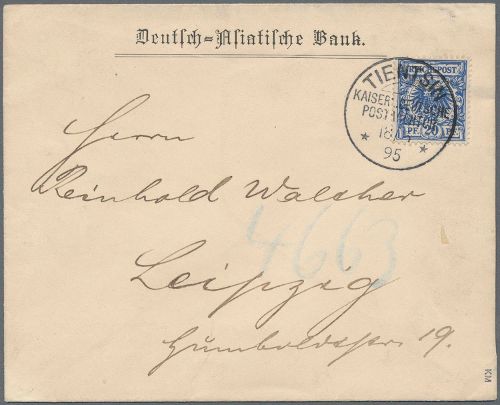 Deutsch=Asiatische Bank.
TIENTSIN
KAISERL. DEUTSCHE
POST
95
REICHSPOST
PF 20 PF
Herrn
Reinhold Walther
4663
Leipzig
Humboldtstr 19.
KM